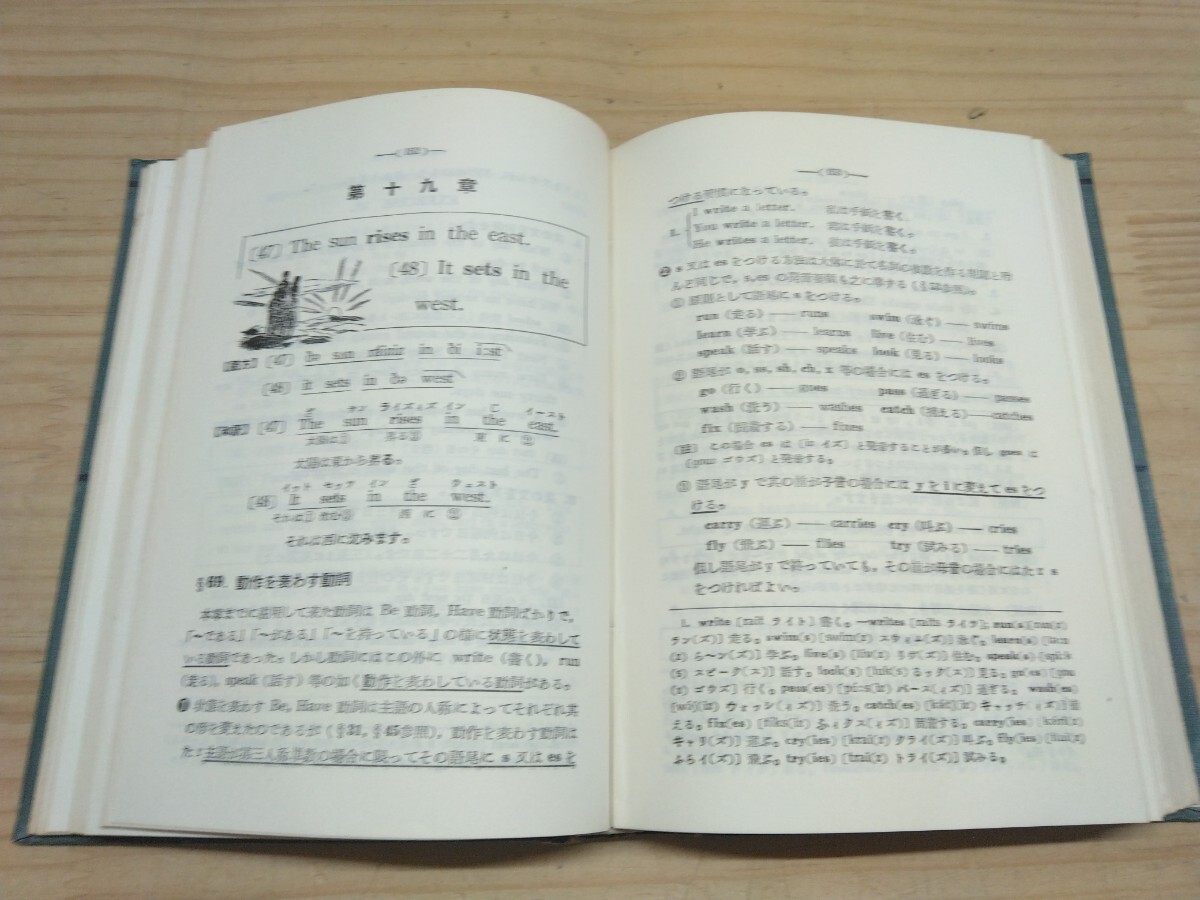 —(152)—
第十九章
[47] The sun rises in the east.
[48] It sets in the
west.
[47] ðə sʌn ráiziz in ði iːst
[48] it sets in ðə west
ザ サン ライズィズ イン ジ イースト
[47] The sun rises in the east.
太陽は① 昇る③ 東に②
太陽は東から昇る。
イット セッツ イン ザ ウェスト
[48] It sets in the west.
それは① 沈む③ 西に②
それは西に沈みます。
§69. 動作を表わす動詞
本章までに説明して来た動詞は Be 動詞, Have 動詞ばかりで,
「〜である」「〜がある」「〜を持っている」の様に状態を表わして
いる動詞であった。しかし動詞にはこの外に write (書く), run
(走る), speak (話す) 等の如く動作を表わしている動詞がある。
❶ 状態を表わす Be, Have 動詞は主語の人称によってそれぞれ其
の形を変えたのであるが (§31, §45参照), 動作を表わす動詞は
たゞ主語が第三人称単数の場合に限ってその語尾に s 又は es を
—(153)—
つける習慣になっている。
I write a letter. 私は手紙を書く。
1. You write a letter. 君は手紙を書く。
He writes a letter. 彼は手紙を書く。
❷ s 又は es をつける方法は大体に於て名詞の複数を作る規則と殆
んど同じで, s, es の発音要領も之に準する
① 原則として語尾に s をつける。
run (走る) —— runs swim (泳ぐ) —— swims
learn (学ぶ) —— learns live (住む) —— lives
speak (話す) —— speaks look (見る) —— looks
② 語尾が o, ss, sh, ch, x 等の場合には es をつける。
go (行く) —— goes pass (過ぎる) —— passes
wash (洗う) —— washes catch (捕える) —— catches
fix (固着する) —— fixes
(註) この場合 es は [iz イズ] と発音することが多い。但し goes は
[gouz ゴウズ] と発音する。
③ 語尾が y で其の前が子音の場合には y を i に変えて es をつ
ける。
carry (運ぶ) —— carries cry (叫ぶ) —— cries
fly (飛ぶ) —— flies try (試みる) —— tries
但し語尾が y で終っていても, その前が母音の場合にはたゞ s
をつければよい。
1. write [rait ライト] 書く。—writes [raits ライツ]; run(s) [rʌn(z)
ラン(ズ)] 走る。swim(s) [swim(z) スウィム(ズ)] 泳ぐ。learn(s) [ləːn
(z) ら〜ン(ズ)] 学ぶ。live(s) [liv(z) リヴ(ズ)] 住む。speak(s) [spiːk
(s) スピーク(ス)] 話す。look(s) [luk(s) るック(ス)] 見る。go(es) [gou
(z) ゴウ(ズ)] 行く。pass(es) [pɑːs(iz) パース(ィズ)] 過ぎる。wash(es)
[wɔʃ(iz) ウォッシ(ィズ)] 洗う。catch(es) [kætʃ(iz) キャッチ(ィズ)] 捕
える。fix(es) [fiks(iz) ふィクス(ィズ)] 固着する。carry(ies) [kæri(z)
キャリ(ズ)] 運ぶ。cry(ies) [krai(z) クライ(ズ)] 叫ぶ。fly(ies) [flai(z)
ふらイ(ズ)] 飛ぶ。try(ies) [trai(z) トライ(ズ)] 試みる。